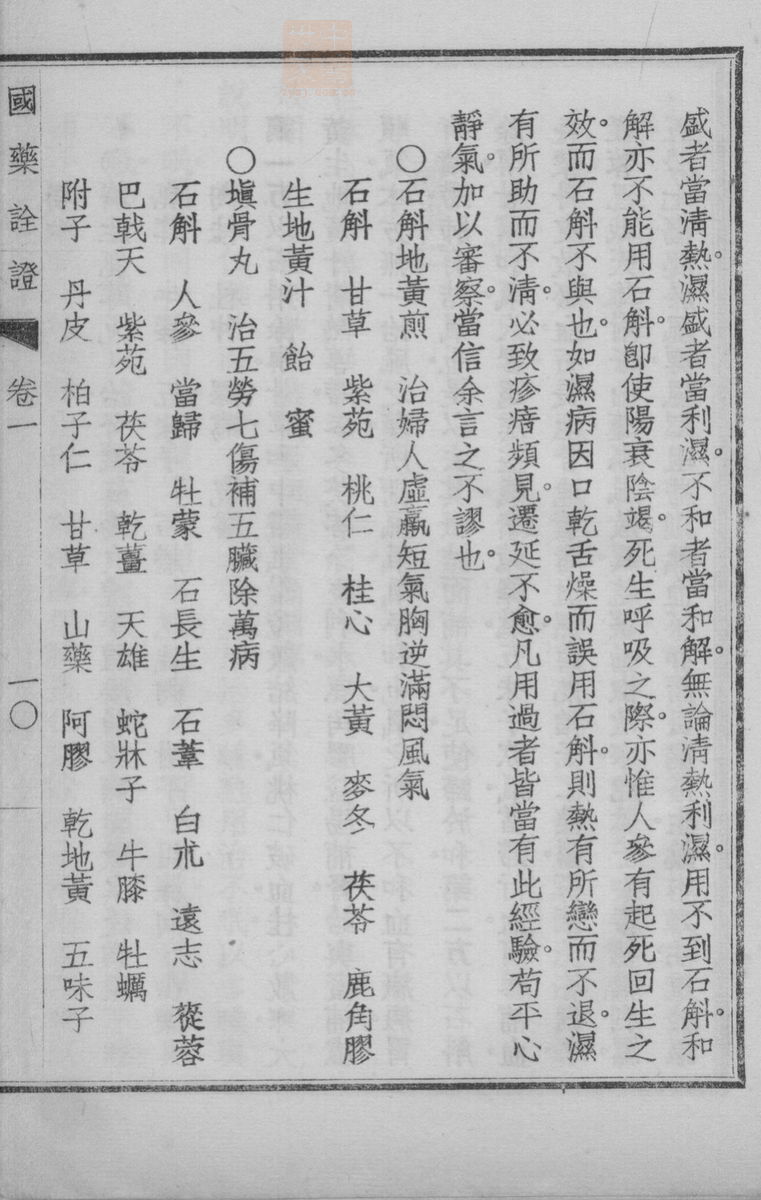 盛者當淸熱。濕盛者當利濕。不和者當和解。無論淸熱利濕。用不到石斛。和
解亦不能用石斛。卽使陽衰陰竭。死生呼吸之際。亦惟人參有起死回生之
效。而石斛不與也。如濕病因口乾舌燥而誤用石斛。則熱有所戀而不退。濕
有所助而不淸。必致疹㾦頻見。遷延不愈。凡用過者皆當有此經驗。苟平心
靜氣。加以審察。當信余言之不謬也。
〇石斛地黃煎　治婦人虛羸短氣胸逆滿悶風氣
石斛　甘草　紫苑　桃仁　桂心　大黃　麥冬　茯苓　鹿角膠
生地黃汁　飴　蜜
〇塡骨丸　治五勞七傷補五臟除萬病
石斛　人參　當歸　牡蒙　石長生　石葦　白朮　遠志　蓯蓉
巴戟天　紫苑　茯苓　乾薑　天雄　蛇牀子　牛膝　牡蠣
附子　丹皮　柏子仁　甘草　山藥　阿膠　乾地黃　五味子
國藥詮證　卷一　一〇